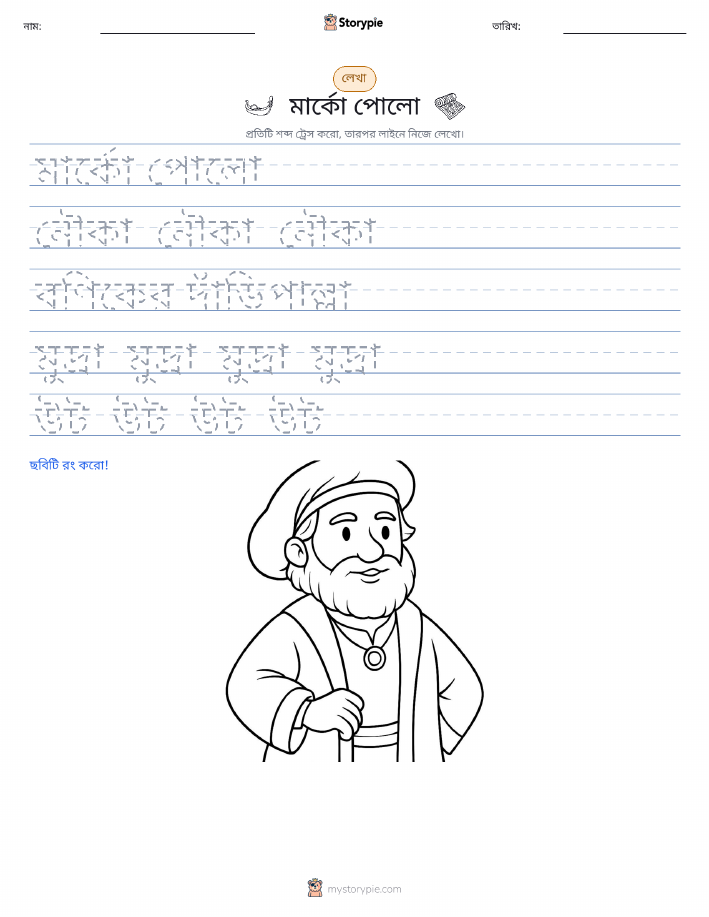 নাম:
Storypie
তারিখ:
লেখা
মার্কো পোলো
প্রতিটি শব্দ ট্রেস করো, তারপর লাইনে নিজে লেখো।
মার্কো পোলো
নৌকা নৌকা নৌকা
বণিকের দাঁড়িপাল্লা
মুদ্রা মুদ্রা মুদ্রা মুদ্রা
উট উট উট উট
ছবিটি রং করো!
mystorypie.com